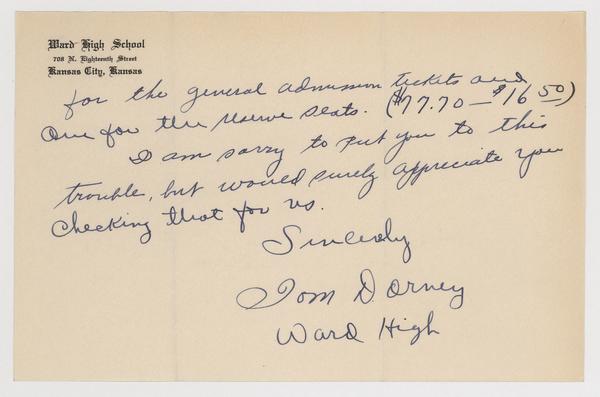 Ward High School
708 N. Eighteenth Street
Kansas City, Kansas
for the general admission tickets and
One for the reserve seats. ($77.70 — $16.50)
I am sorry to put you to this
trouble, but would surely appreciate you
checking that for us.
Sincerely
Tom Dorney
Ward High